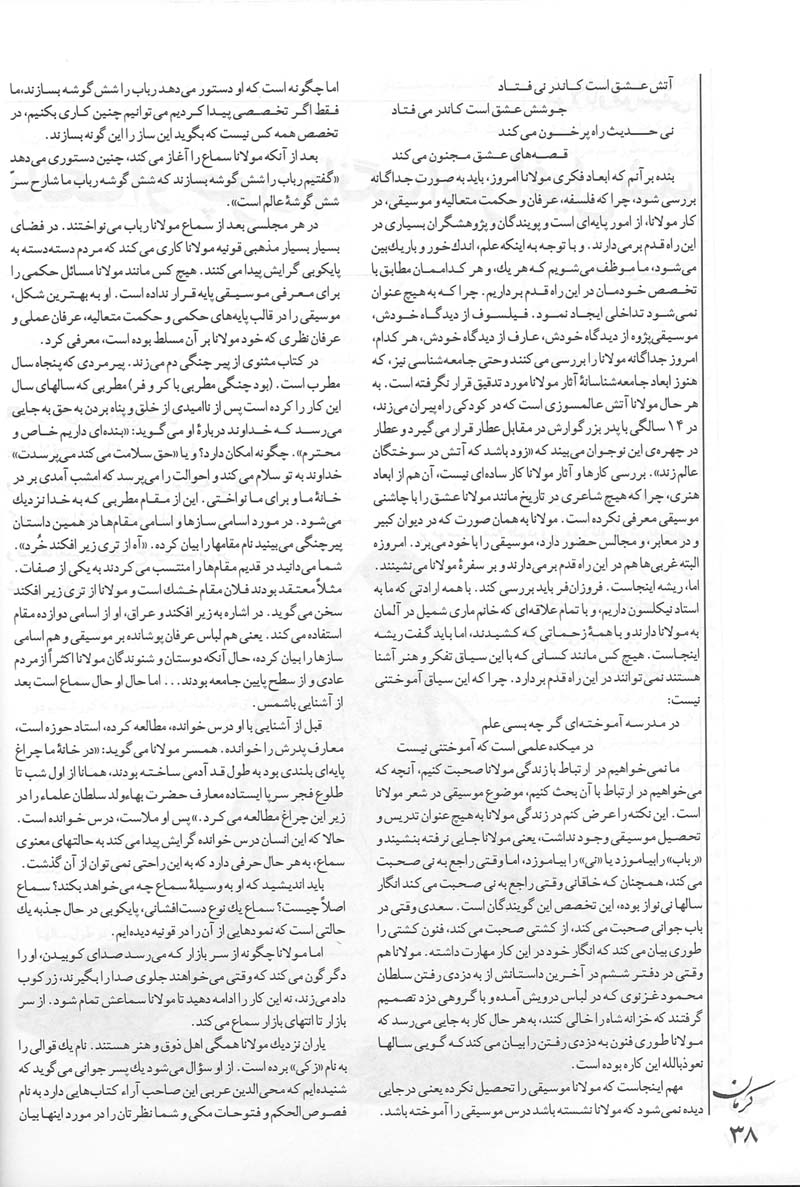 آتش عشق است کاندر نی فتاد
جوشش عشق است کاندر می فتاد
نی حدیث راه پر خون می کند
قصه‌های عشق مجنون می کند
بنده بر آنم که ابعاد فکری مولانا امروز، باید به صورت جداگانه
بررسی شود، چرا که فلسفه، عرفان و حکمت متعالیه و موسیقی، در
کار مولانا، از امور پایه‌ای است و پویندگان و پژوهشگران بسیاری در
این راه قدم بر می‌دارند. و با توجه به اینکه علم، اندك خور و باریك بین
می‌شود، ما موظف می‌شویم که هر یك، و هر کداممان مطابق با
تخصص خودمان در این راه قدم برداریم. چرا که به هیچ عنوان
نمی‌شود تداخلی ایجاد نمود. فیلسوف از دیدگاه خودش،
موسیقی‌پژوه از دیدگاه خودش، عارف از دیدگاه خودش، هر کدام،
امروز جداگانه مولانا را بررسی می کنند وحتی جامعه‌شناسی نیز، که
هنوز ابعاد جامعه‌شناسانهٔ آثار مولانا مورد تدقیق قرار نگرفته است. به
هر حال مولانا آتش عالمسوزی است که در کودکی راه پیران می‌زند،
در ۱۴ سالگی با پدر بزرگوارش در مقابل عطار قرار می گیرد و عطار
در چهره‌ی این نوجوان می‌بیند که «زود باشد که آتش در سوختگان
عالم زند». بررسی کارها و آثار مولانا کار ساده‌ای نیست، آن هم از ابعاد
هنری، چرا که هیچ شاعری در تاریخ مانند مولانا عشق را با چاشنی
موسیقی معرفی نکرده است. مولانا به همان صورت که در دیوان کبیر
و در معابر، و مجالس حضور دارد، موسیقی را با خود می‌برد. امروزه
البته غربی‌ها هم در این راه قدم بر می‌دارند و بر سفرهٔ مولانا می‌نشینند.
اما، ریشه اینجاست. فروزان‌فر باید بررسی کند. با همه ارادتی که ما به
استاد نیکلسون داریم، و با تمام علاقه‌ای که خانم ماری شمیل در آلمان
به مولانا دارند و با همهٔ زحماتی که کشیدند، اما باید گفت ریشه
اینجاست. هیچ کس مانند کسانی که با این سیاق تفکر و هنر آشنا
هستند نمی توانند در این راه قدم بردارد. چرا که این سیاق آموختنی
نیست:
در مدرسه آموخته‌ای گر چه بسی علم
در میکده علمی است که آموختنی نیست
ما نمی‌خواهیم در ارتباط با زندگی مولانا صحبت کنیم، آنچه که
می‌خواهیم در ارتباط با آن بحث کنیم، موضوع موسیقی در شعر مولانا
است. این نکته را عرض کنم در زندگی مولانا به هیچ عنوان تدریس و
تحصیل موسیقی وجود نداشت، یعنی مولانا جایی نرفته بنشیند و
«رباب» را بیاموزد یا «نی» را بیاموزد، اما وقتی راجع به نی صحبت
می کند، همچنان که خاقانی وقتی راجع به نی صحبت می کند انگار
سالها نی‌نواز بوده، این تخصص این گویندگان است. سعدی وقتی در
باب جوانی صحبت می کند، از کشتی صحبت می کند، فنون کشتی را
طوری بیان می کند که انگار خود در این کار مهارت داشته. مولانا هم
وقتی در دفتر ششم در آخرین داستانش از به دزدی رفتن سلطان
محمود غزنوی که در لباس درویش آمده و با گروهی دزد تصمیم
گرفتند که خزانه شاه را خالی کنند، به هر حال کار به جایی می‌رسد که
مولانا طوری فنون به دزدی رفتن را بیان می کند که گویی سالها
نعوذبالله این کاره بوده است.
مهم اینجاست که مولانا موسیقی را تحصیل نکرده یعنی در جایی
دیده نمی‌شود که مولانا نشسته باشد درس موسیقی را آموخته باشد.
اما چگونه است که او دستور می‌دهد رباب را شش گوشه بسازند، ما
فقط اگر تخصصی پیدا کردیم می توانیم چنین کاری بکنیم، در
تخصص همه کس نیست که بگوید این ساز را این گونه بسازند.
بعد از آنکه مولانا سماع را آغاز می کند، چنین دستوری می‌دهد
«گفتیم رباب را شش گوشه بسازند که شش گوشه رباب ما شارح سرّ
شش گوشهٔ عالم است».
در هر مجلسی بعد از سماع مولانا رباب می‌نواختند. در فضای
بسیار بسیار مذهبی قونیه مولانا کاری می کند که مردم دسته‌دسته به
پایکوبی گرایش پیدا می کنند. هیچ کس مانند مولانا مسائل حکمی را
برای معرفی موسیقی پایه قرار نداده است. او به بهترین شکل،
موسیقی را در قالب پایه‌های حکمی و حکمت متعالیه، عرفان عملی و
عرفان نظری که خود مولانا بر آن مسلط بوده است، معرفی کرد.
در کتاب مثنوی از پیر چنگی دم می‌زند. پیرمردی که پنجاه سال
مطرب است. (بود چنگی مطربی با کر و فر) مطربی که سالهای سال
این کار را کرده است پس از ناامیدی از خلق و پناه بردن به حق به جایی
می‌رسد که خداوند دربارهٔ او می گوید: «بنده‌ای داریم خاص و
محترم». چگونه امکان دارد؟ و یا «حق سلامت می کند می‌پرسدت»
خداوند به تو سلام می کند و احوالت را می‌پرسد که امشب آمدی بر در
خانهٔ ما و برای ما نواختی. این از مقام مطربی که به خدا نزدیك
می‌شود. در مورد اسامی سازها و اسامی مقام‌ها در همین داستان
پیر چنگی می‌بینید نام مقامها را بیان کرده. «آه از تری زیر افکند خُرد».
شما می‌دانید در قدیم مقام‌ها را منتسب می کردند به یکی از صفات.
مثلاً معتقد بودند فلان مقام خشك است و مولانا از تری زیر افکند
سخن می گوید. در اشاره به زیر افکند و عراق، او از اسامی دوازده مقام
استفاده می کند. یعنی هم لباس عرفان پوشانده بر موسیقی و هم اسامی
سازها را بیان کرده، حال آنکه دوستان و شنوندگان مولانا اکثراً از مردم
عادی و از سطح پایین جامعه بودند... اما حال او حال سماع است بعد
از آشنایی باشمس.
قبل از آشنایی با او درس خوانده، مطالعه کرده، استاد حوزه است،
معارف پدرش را خوانده. همسر مولانا می گوید: «در خانهٔ ما چراغ
پایه‌ای بلندی بود به طول قد آدمی ساخته بودند، همانا از اول شب تا
طلوع فجر سرپا ایستاده معارف حضرت بهاءولد سلطان علماء را در
زیر این چراغ مطالعه می کرد.» پس او ملاست، درس خوانده است.
حالا که این انسان درس خوانده گرایش پیدا می کند به حالتهای معنوی
سماع، به هر حال حرفی دارد که به این راحتی نمی توان از آن گذشت.
باید اندیشید که او به وسیلهٔ سماع چه می‌خواهد بکند؟ سماع
اصلاً چیست؟ سماع یك نوع دست‌افشانی، پایکوبی در حال جذبه یك
حالتی است که نمودهایی از آن را در قونیه دیده‌ایم.
اما مولانا چگونه از سر بازار که می‌رسد صدای کوبیدن، او را
دگرگون می کند که وقتی می‌خواهند جلوی صدا را بگیرند، زرکوب
داد می‌زند، نه این کار را ادامه دهید تا مولانا سماعش تمام شود. از سر
بازار تا انتهای بازار سماع می کند.
یاران نزدیك مولانا همگی اهل ذوق و هنر هستند. نام یك قوالی را
به نام «زکی» برده است. از او سؤال می‌شود یك پسر جوانی می گوید که
شنیده‌ایم که محی‌الدین عربی این صاحب آراء کتاب‌هایی دارد به نام
فصوص الحکم و فتوحات مکی و شما نظرتان را در مورد اینها بیان
کرمان
۳۸